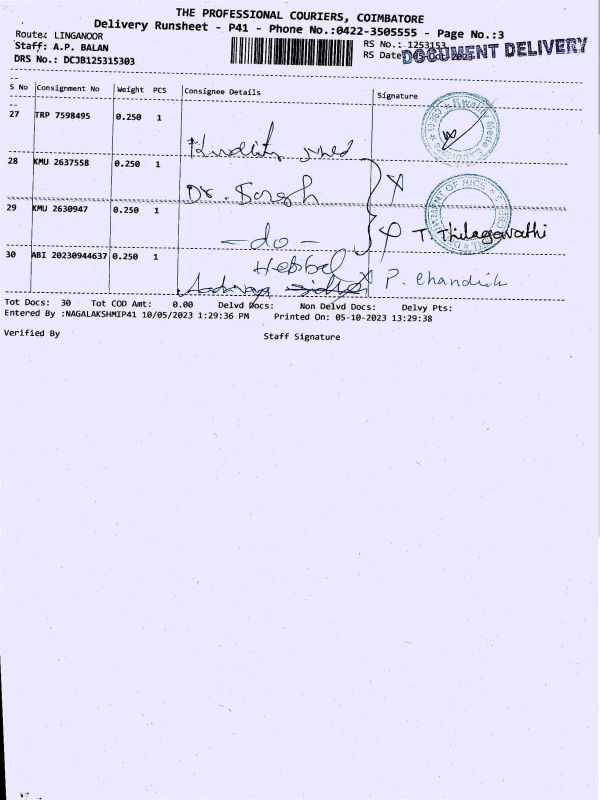 THE PROFESSIONAL COURIERS, COIMBATORE
Delivery Runsheet - P41 - Phone No.:0422-3505555 - Page No.:3
Route: LINGANOOR
RS No.: 1253153
Staff: A.P. BALAN
RS Date
DOCUMENT DELIVERY
DRS No.: DCJB125315303
S No Consignment No Weight PCS Consignee Details Signature
27 TRP 7598495 0.250 1
28 KMU 2637558 0.250 1
Dr.
29 KMU 2630947 0.250 1
- do - T. Thilagavathi
30 ABI 20230944637 0.250 1
Hebbal P.
Tot Docs: 30 Tot COD Amt: 0.00 Delvd Docs: Non Delvd Docs: Delvy Pts:
Entered By :NAGALAKSHMIP41 10/05/2023 1:29:36 PM Printed On: 05-10-2023 13:29:38
Verified By Staff Signature